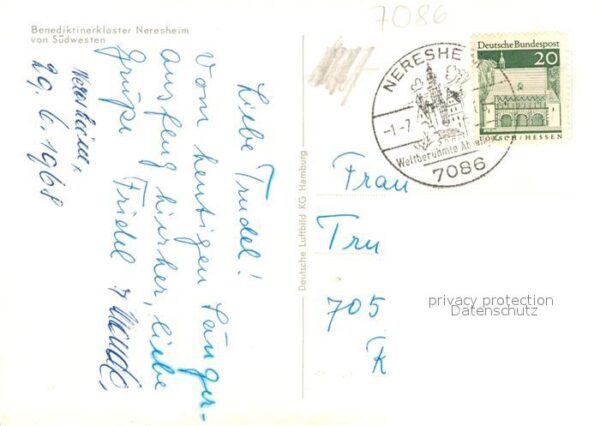 Benediktinerkloster Neresheim
von Südwesten
7086
Neresheim,
29. 6. 1968
Liebe Trudel!
Vom heutigen Sänger-
ausflug hierher, liebe
Grüße Friedel +
Deutsche Luftbild KG Hamburg
NERESHE
-1-7
Weltberühmte Ab
7086
Deutsche Bundespost
20
LORSCH/HESSEN
Frau
Tru
705
K
privacy protection
Datenschutz